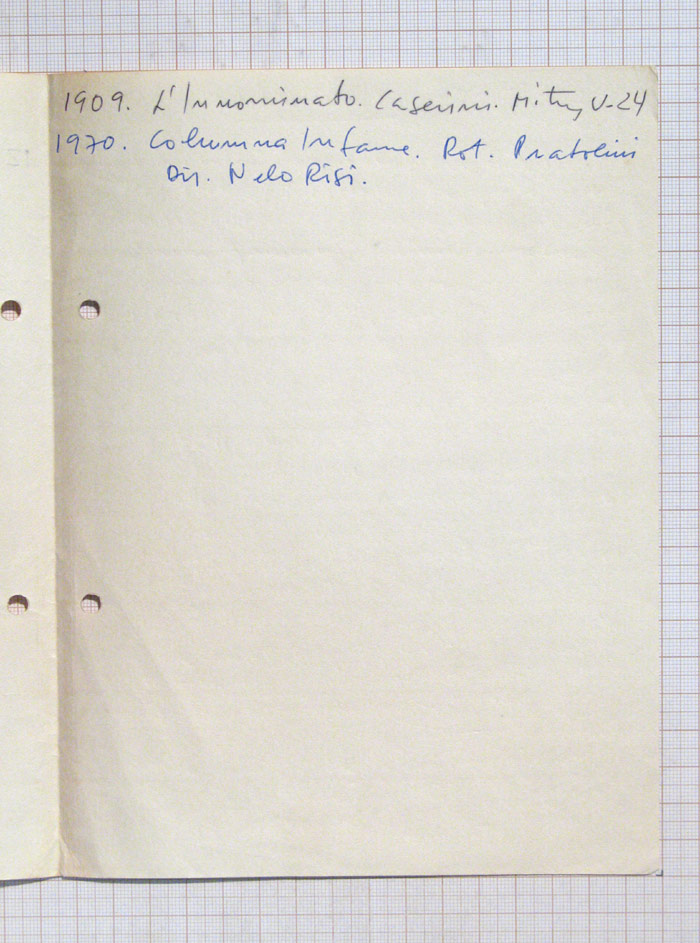 1909. L'Innominato. Caserini. Mitry, V-24
1970. Columna Infame. Rot. Pratolini
Dir. Nelo Risi.